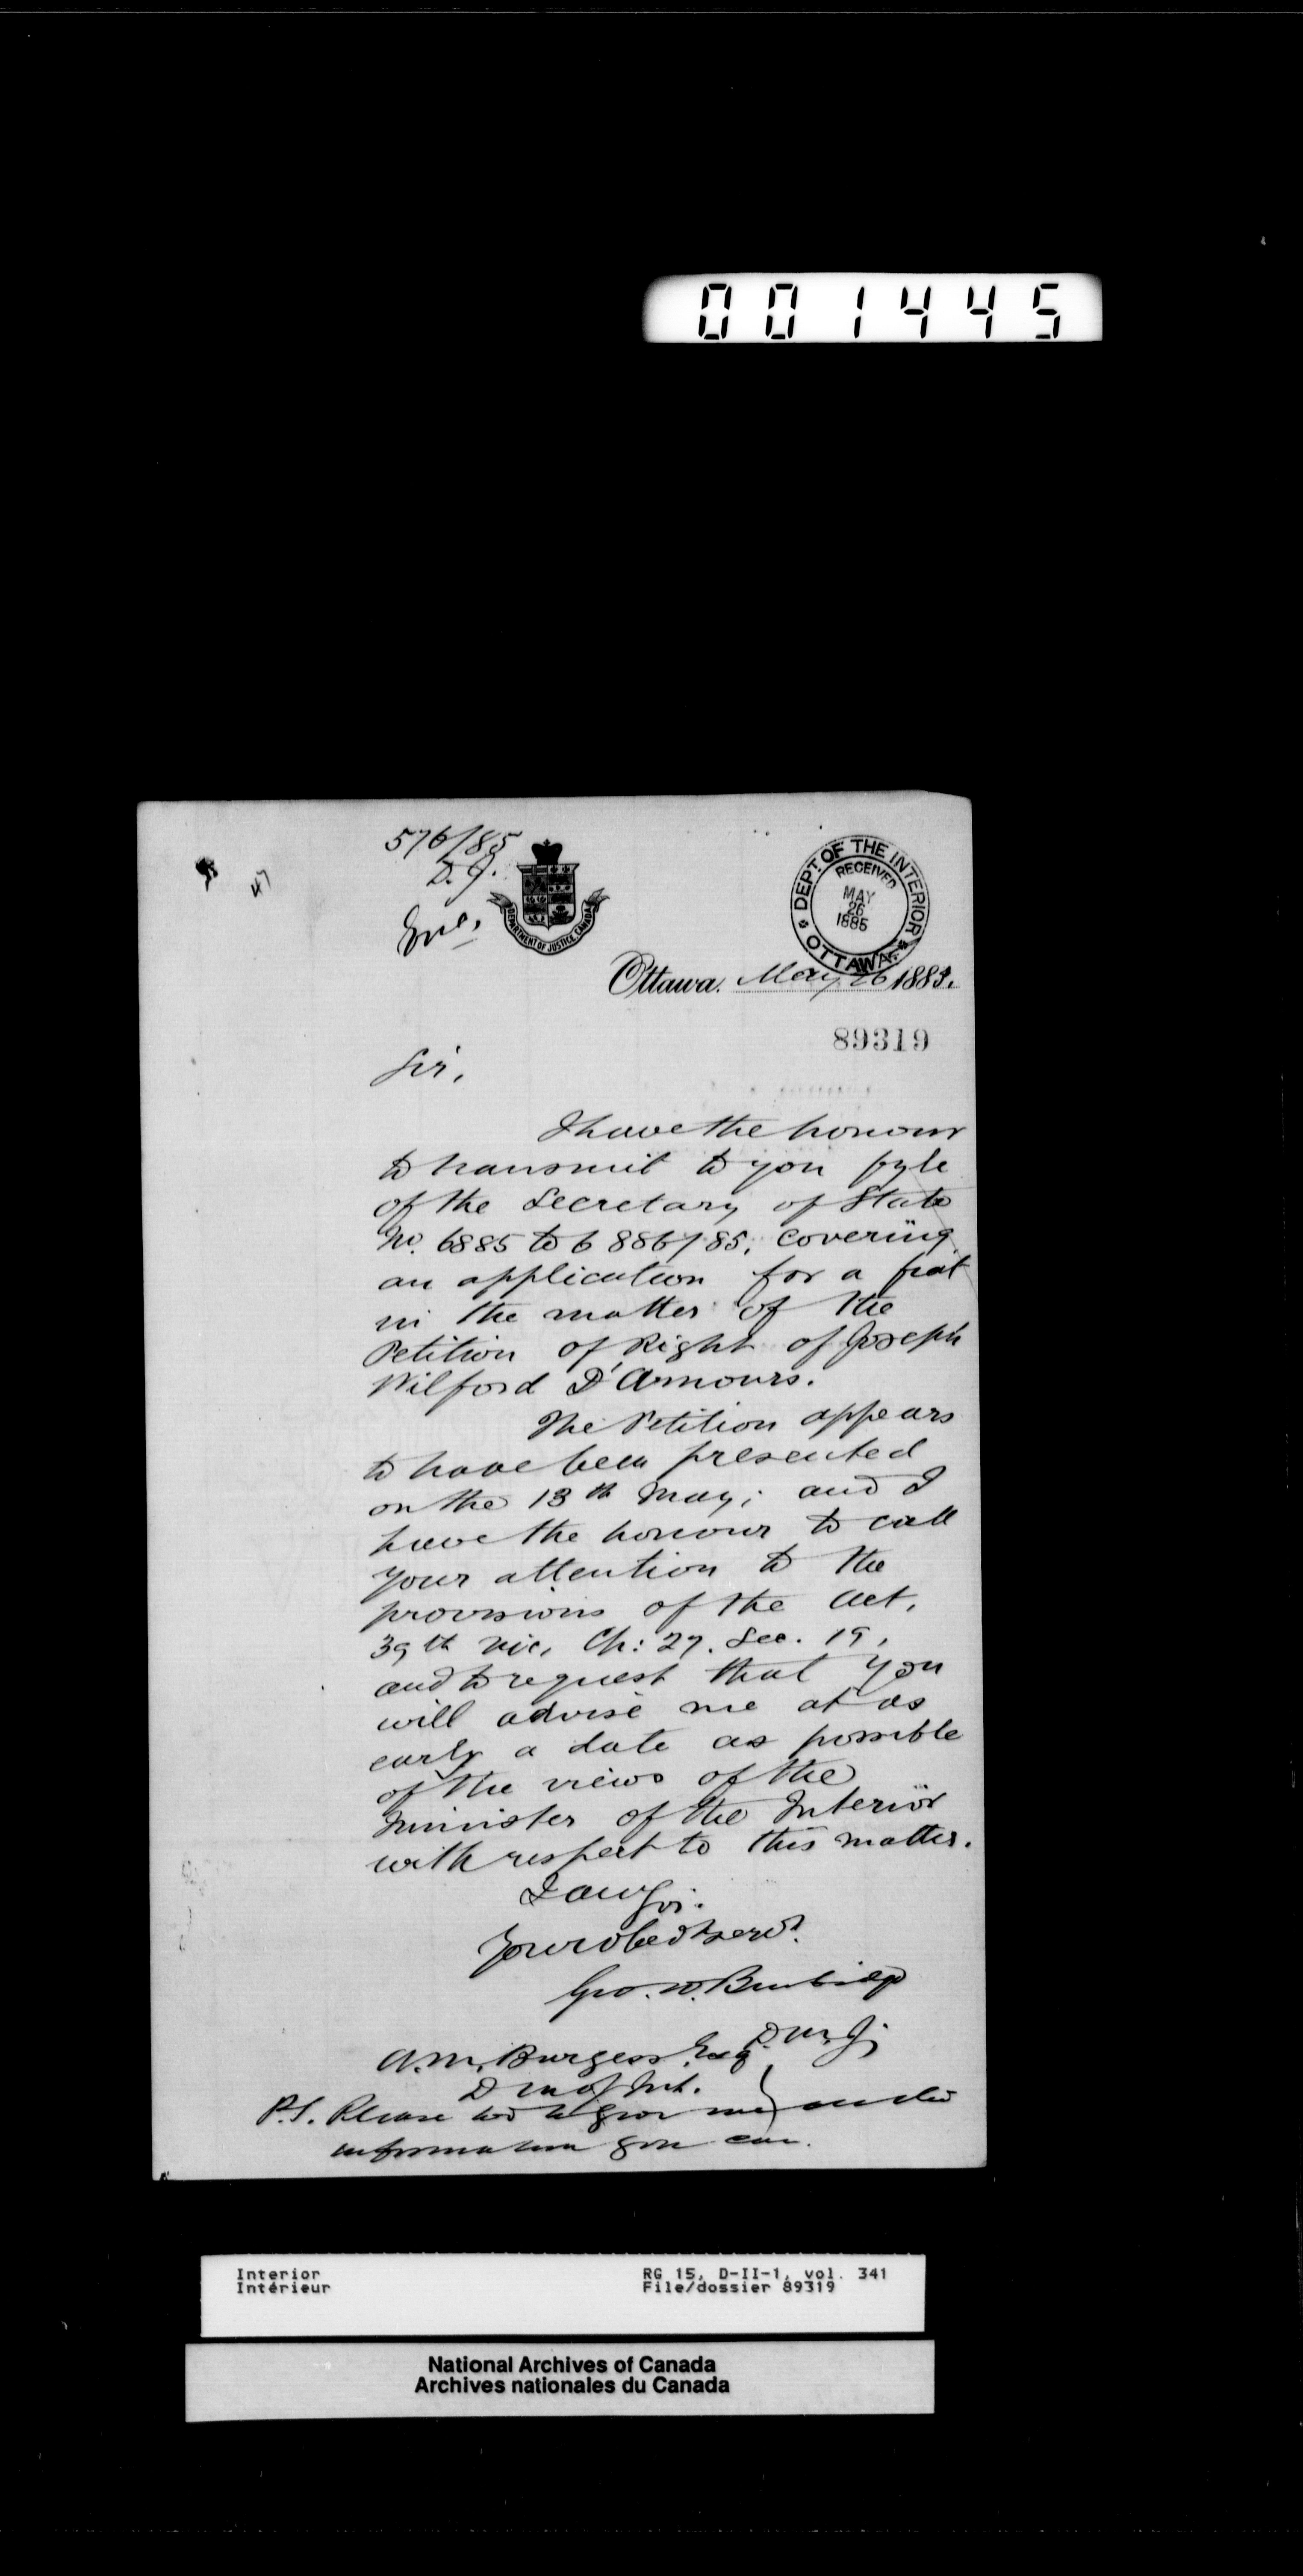 001445
576/85
D. J.
Enc.
47
DEPARTMENT OF JUSTICE, CANADA
DEPT. OF THE INTERIOR
RECEIVED
MAY
26
1885
OTTAWA
Ottawa. May 26 1885.
89319
Sir,
I have the honour
to transmit to you fyle
of the Secretary of State
No. 6885 to 6886/85, covering
an application for a fiat
in the matter of the
Petition of Right of Joseph
Wilford D'Amours.
The Petition appears
to have been presented
on the 13th May; and I
have the honour to call
your attention to the
provisions of the Act,
39th Vic, Ch: 27. Sec. 19,
and to request that you
will advise me at as
early a date as possible
of the views of the
Minister of the Interior
with respect to this matter.
I am Sir.
Your obedt servt.
Geo. W. Burbidge
D.M.J.
A.M. Burgess, Esq
D M of Int.
P.S. Please to give me
information you can.
Interior
Intérieur
RG 15, D-II-1, vol. 341
File/dossier 89319
National Archives of Canada
Archives nationales du Canada